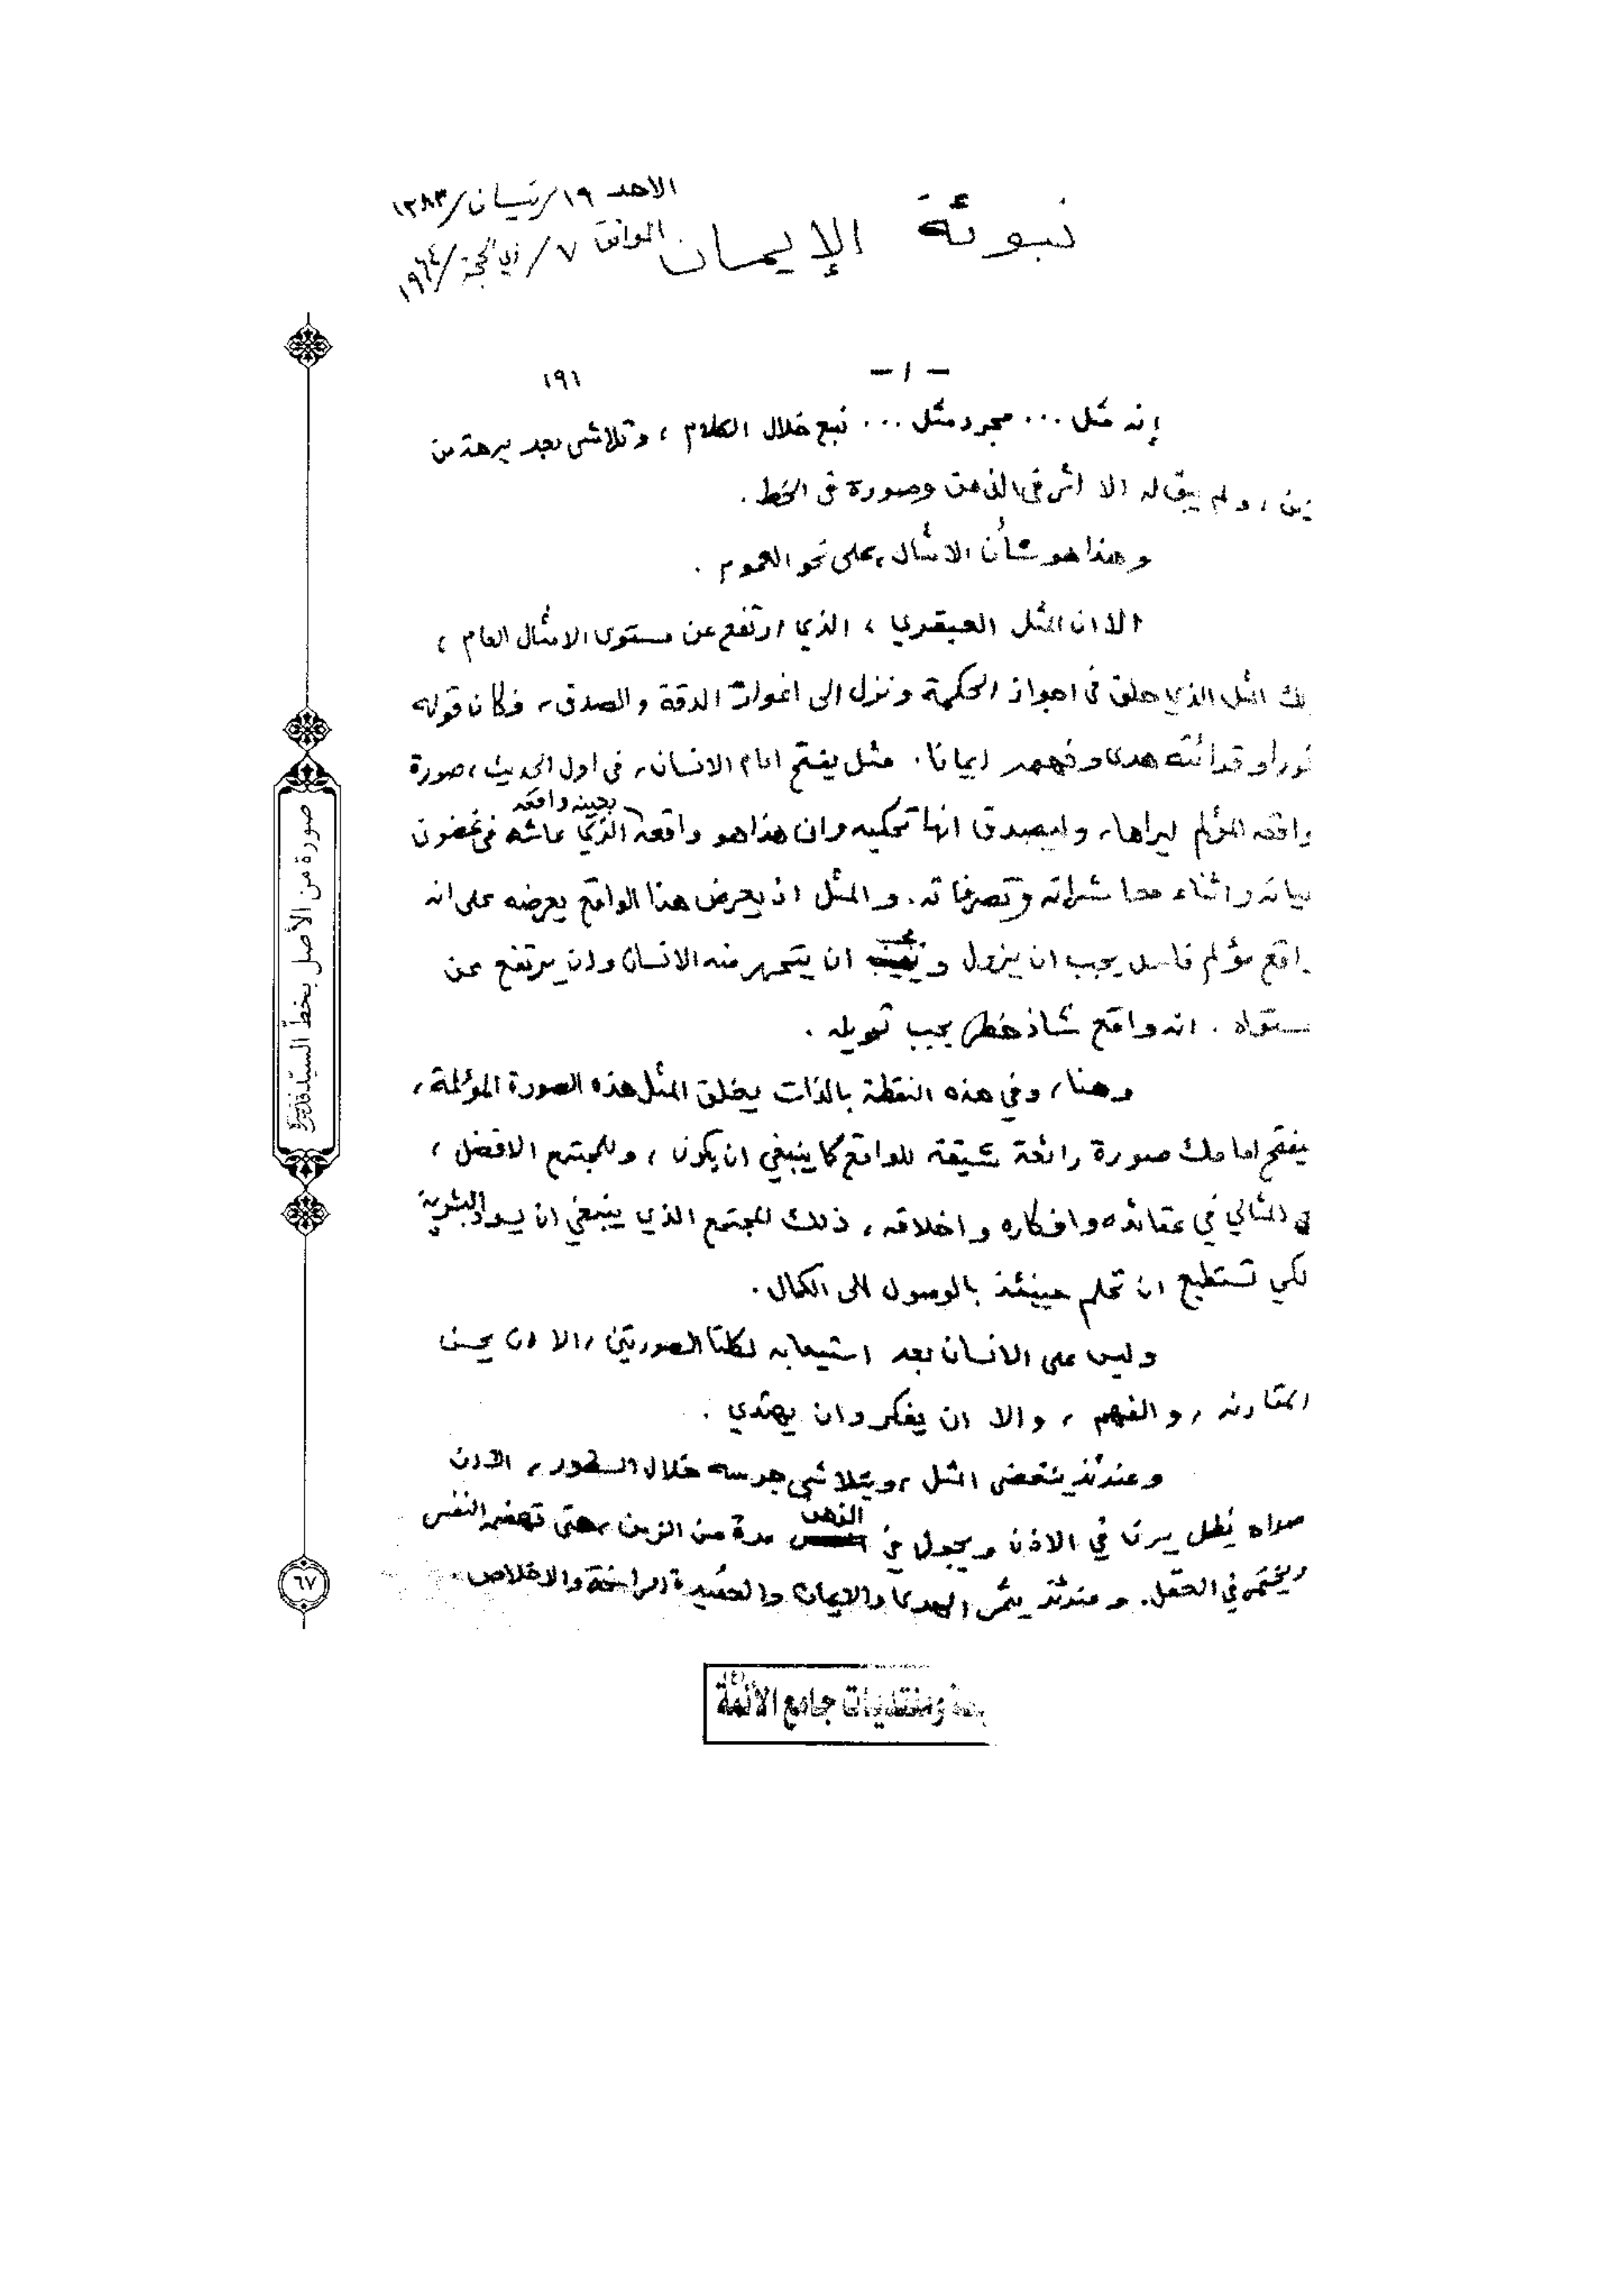 نبوئة الإيمان
الاحد ١٩/نيسان/١٣٨٣
الموافق ٧/ذي الحجة/١٩٦٤
١٩١
- ١ -
إنه مثل ... مجرد مثل ... نبع خلال الكلام ، وتلاشى بعد برهة من
زمن ، ولم يبق له الا اثر في الذهن وصورة في الخط .
وهذا هو شأن الامثال ، على نحو العموم .
الا ان المثل العبقري ، الذي ارتفع عن مستوى الامثال العام ،
لك المثل الذي حلق في اجواز الحكمة ونزل الى اغوار الدقة والصدق ، فكان قوله
نورا وقرائته هدى وفهمه ايمانا . مثل يفتح امام الانسان ، في اول الحديث ، صورة
واقعه المؤلم ليراها ، وليصدق انها تحكيه وان هذا هو واقعه بعينه واقعه الذي عاشه في غضون
حياته واثناء معاشراته وتصرفاته . والمثل اذ يعرض هذا الواقع يعرضه على انه
واقع مؤلم فاسد يجب ان يزول و يجب ان يتحرر منه الانسان وان يرتفع عن
مستواه . انه واقع شاذ خطر يجب تحويله .
وهنا ، وفي هذه النقطة بالذات يغلق المثل هذه الصورة المؤلمة ،
يفتح امامك صورة رائعة شيقة للواقع كما ينبغي ان يكون ، وللمجتمع الافضل ،
المثالي في عقائده وافكاره واخلاقه ، ذلك المجتمع الذي ينبغي ان يسود البشرية
لكي تستطيع ان تحلم حينئذ بالوصول الى الكمال .
وليس على الانسان بعد استيعابه لكلتا الصورتين ، الا ان يحسن
المقارنة ، والفهم ، والا ان يفكر وان يهتدي .
وعندئذ ينقضي المثل ، ويتلاشى جرسه خلال السطور ، الا ان
صداه يظل يرن في الاذن ويجول في الذهن مدة من الزمن ، حتى تهضمه النفس
ويختمر في العقل . وعندئذ يثمر الهدى والايمان والعقيدة الراسخة والاخلاص .
صورة من الأصل بخطّ السيّد
٦٧
(٤)
ومنتديات جامع الأئمة